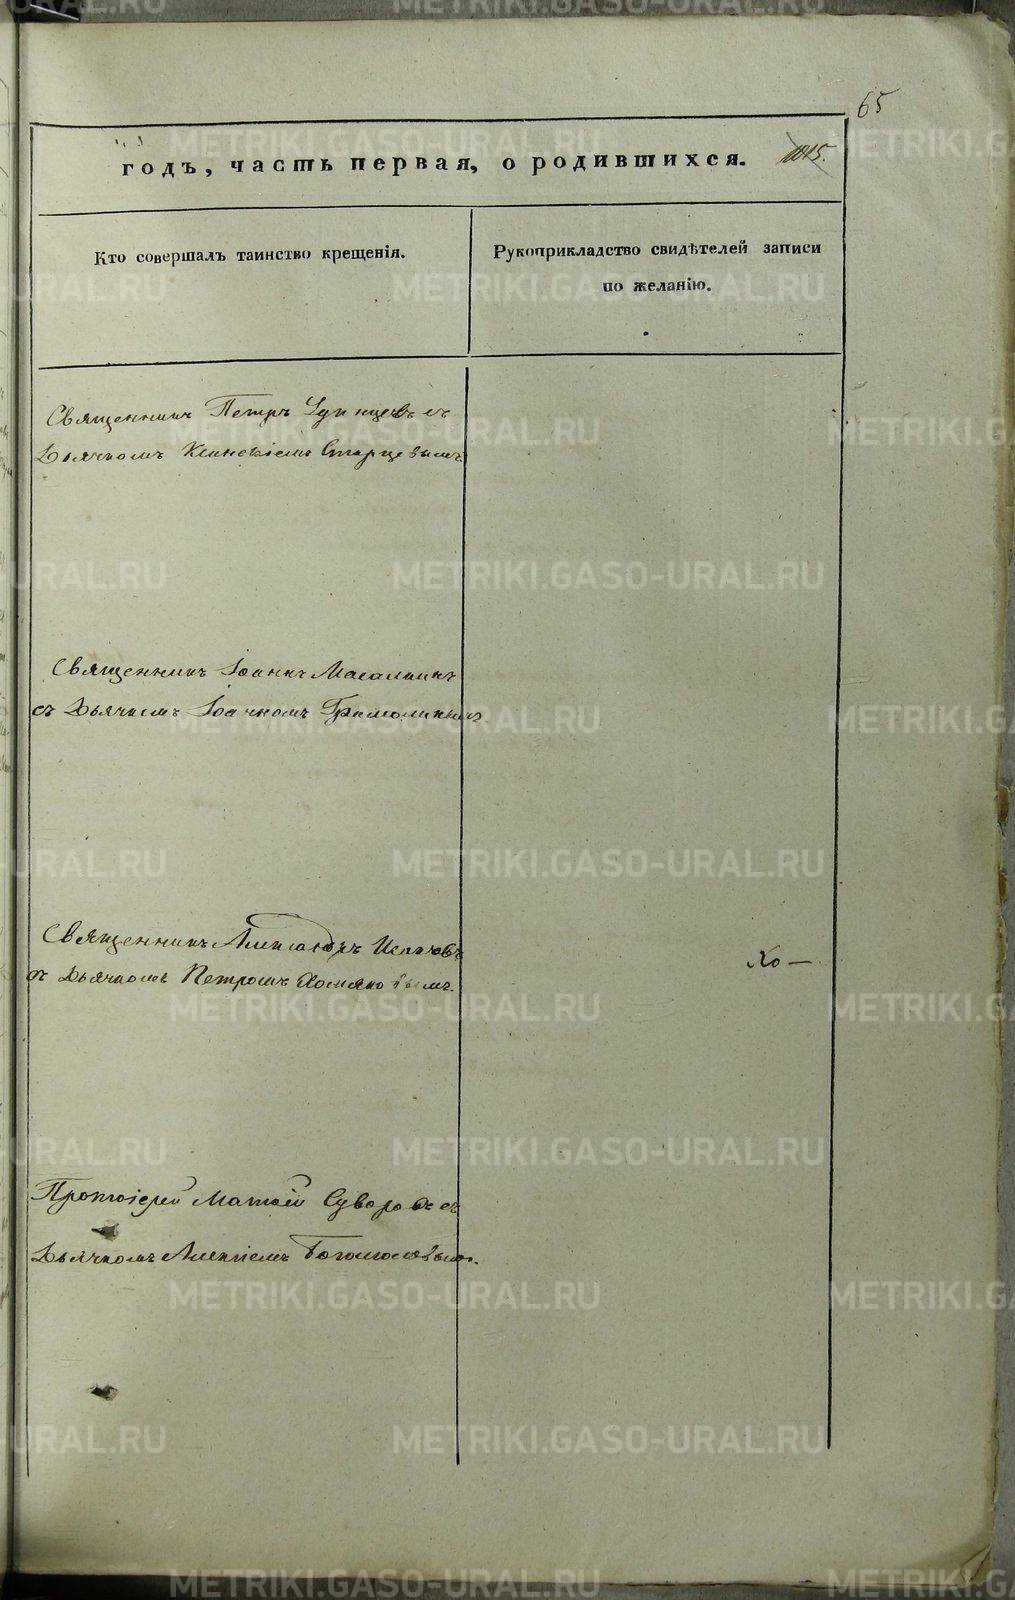 65
годъ, часть первая, о родившихся. 1015.
Кто совершалъ таинство крещенія.
Рукоприкладство свидѣтелей записи
по желанію.
Священникъ Петръ съ
Дьячкомъ Старцевымъ
Священникъ Іоаннъ
съ Дьячкомъ Іоанномъ
Священникъ Александръ
съ Дьячкомъ Петромъ Хомяковымъ.
Хо —
Протоіерей Матѳій Суворовъ съ
Дьячкомъ Алексіемъ Богомоловымъ.
METRIKI.GASO-URAL.RU